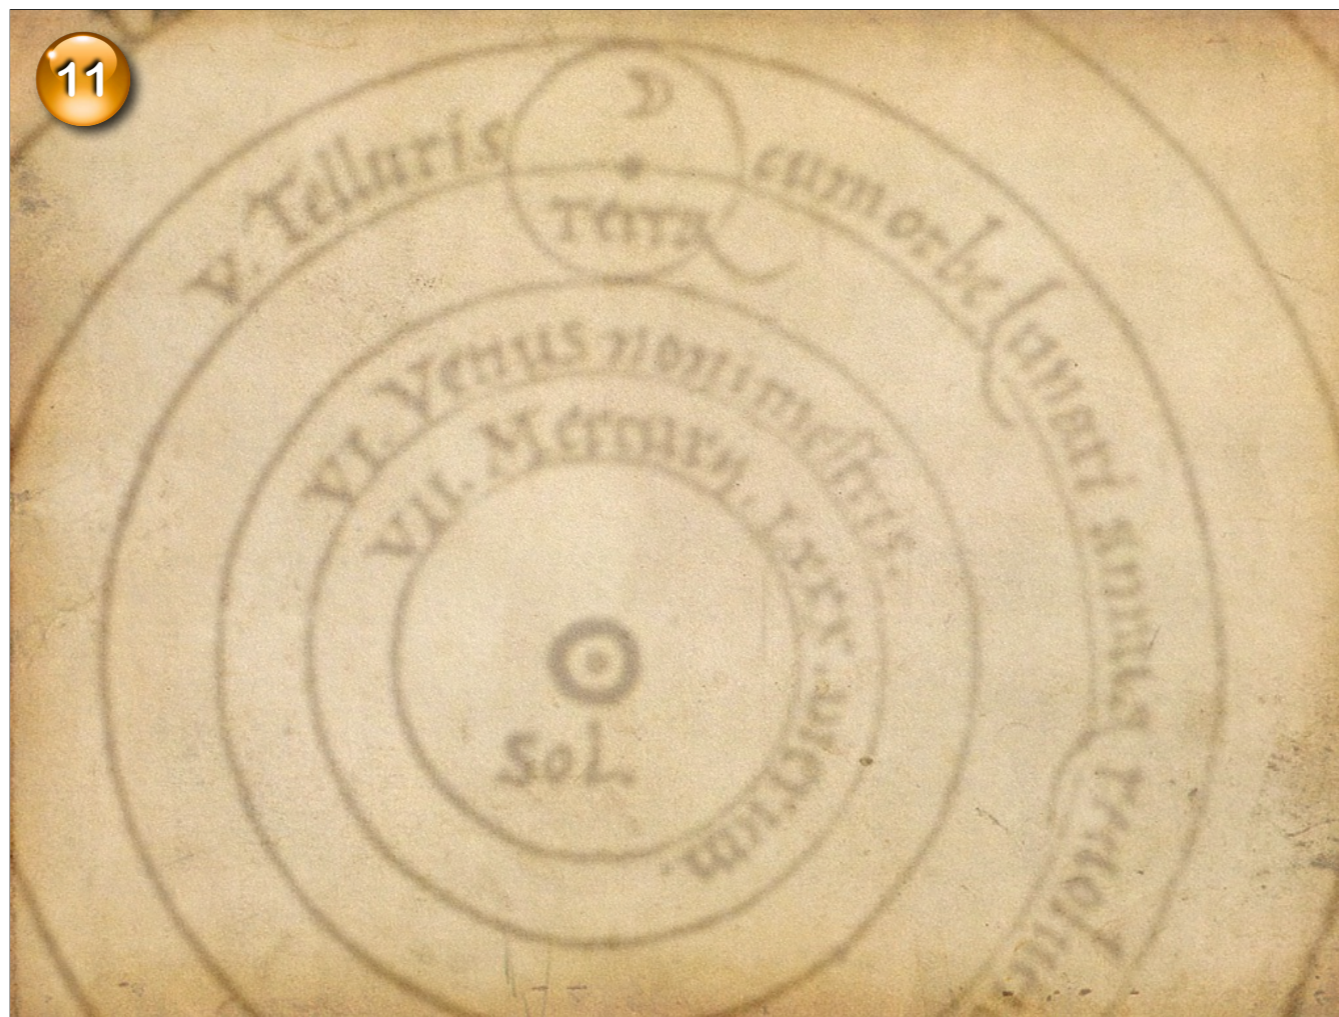 11
V. Telluris
cum orbe lunari annua revolutio
Terra
VI. Venus nonimestris.
VII. Mercurij. Lxxx dierum.
Sol